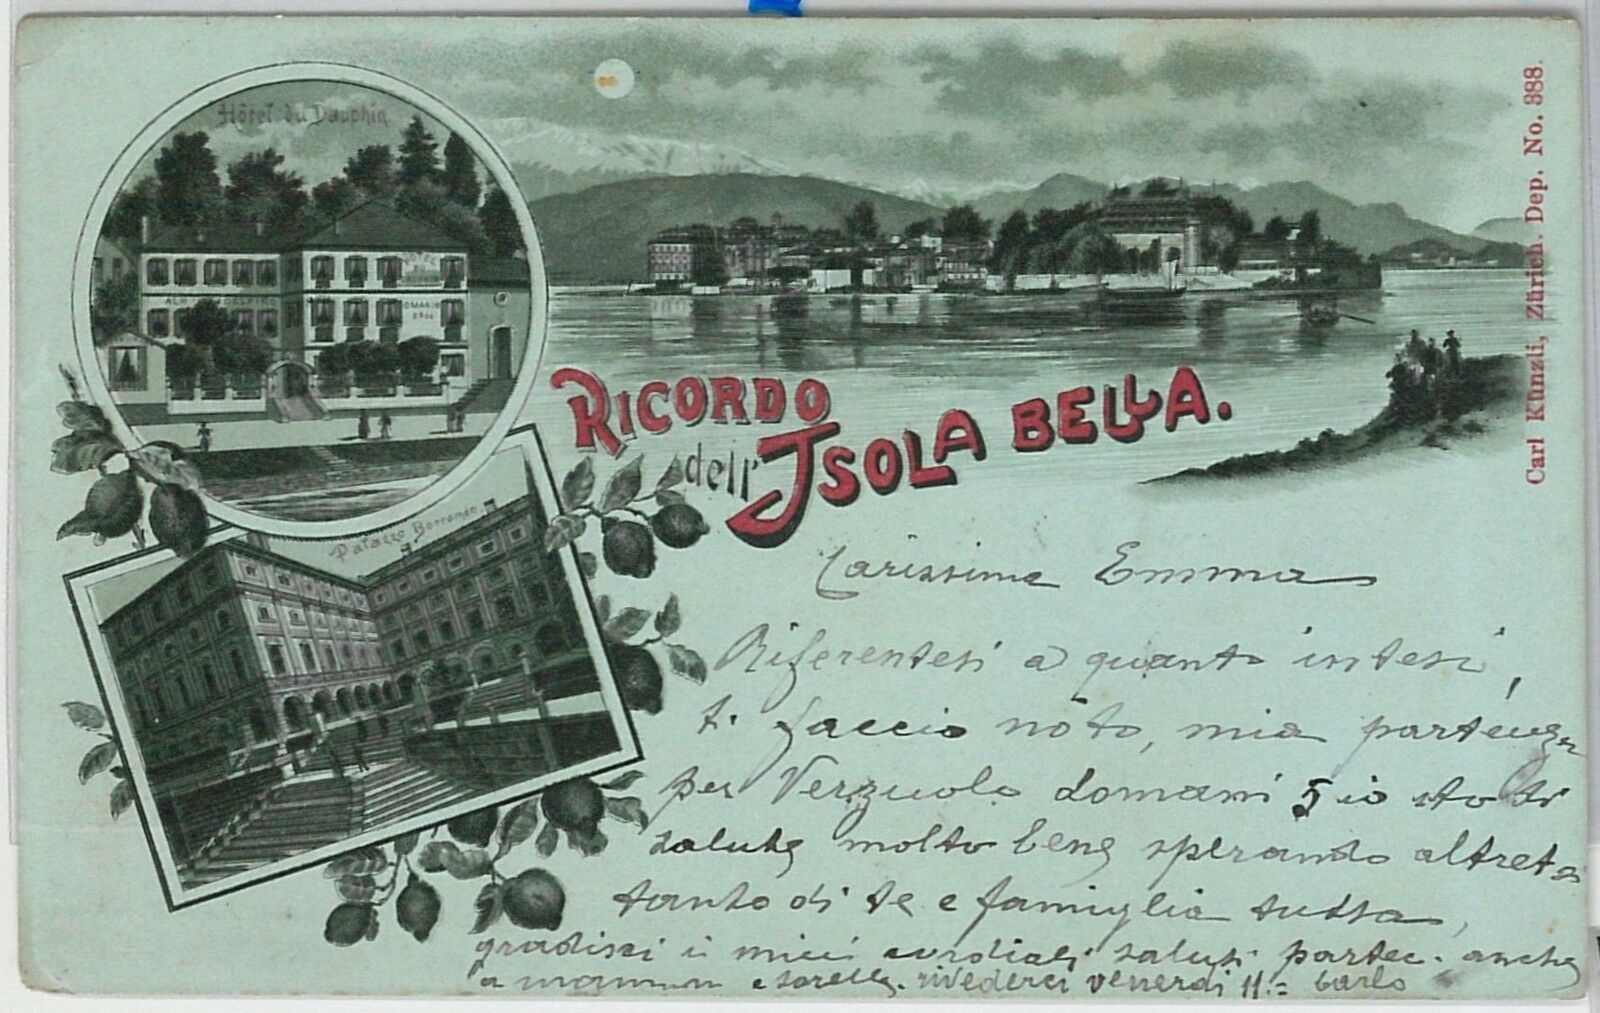 Hôtel du Dauphin
ALB DELFINO
Palazzo Borromeo
RICORDO
dell'ISOLA BELLA.
Carl Künzli, Zürich. Dep. No. 388.
Carissima Emma
Riferentesi a quanto intesi,
ti faccio noto, mia partenza
per Verzuolo domani 5 io sto di
salute molto bene sperando altret
tanto di te e famiglia tutta,
gradisci i miei cordiali saluti partec. anche
a mamma e sorella. rivederci venerdi 11.= Carlo